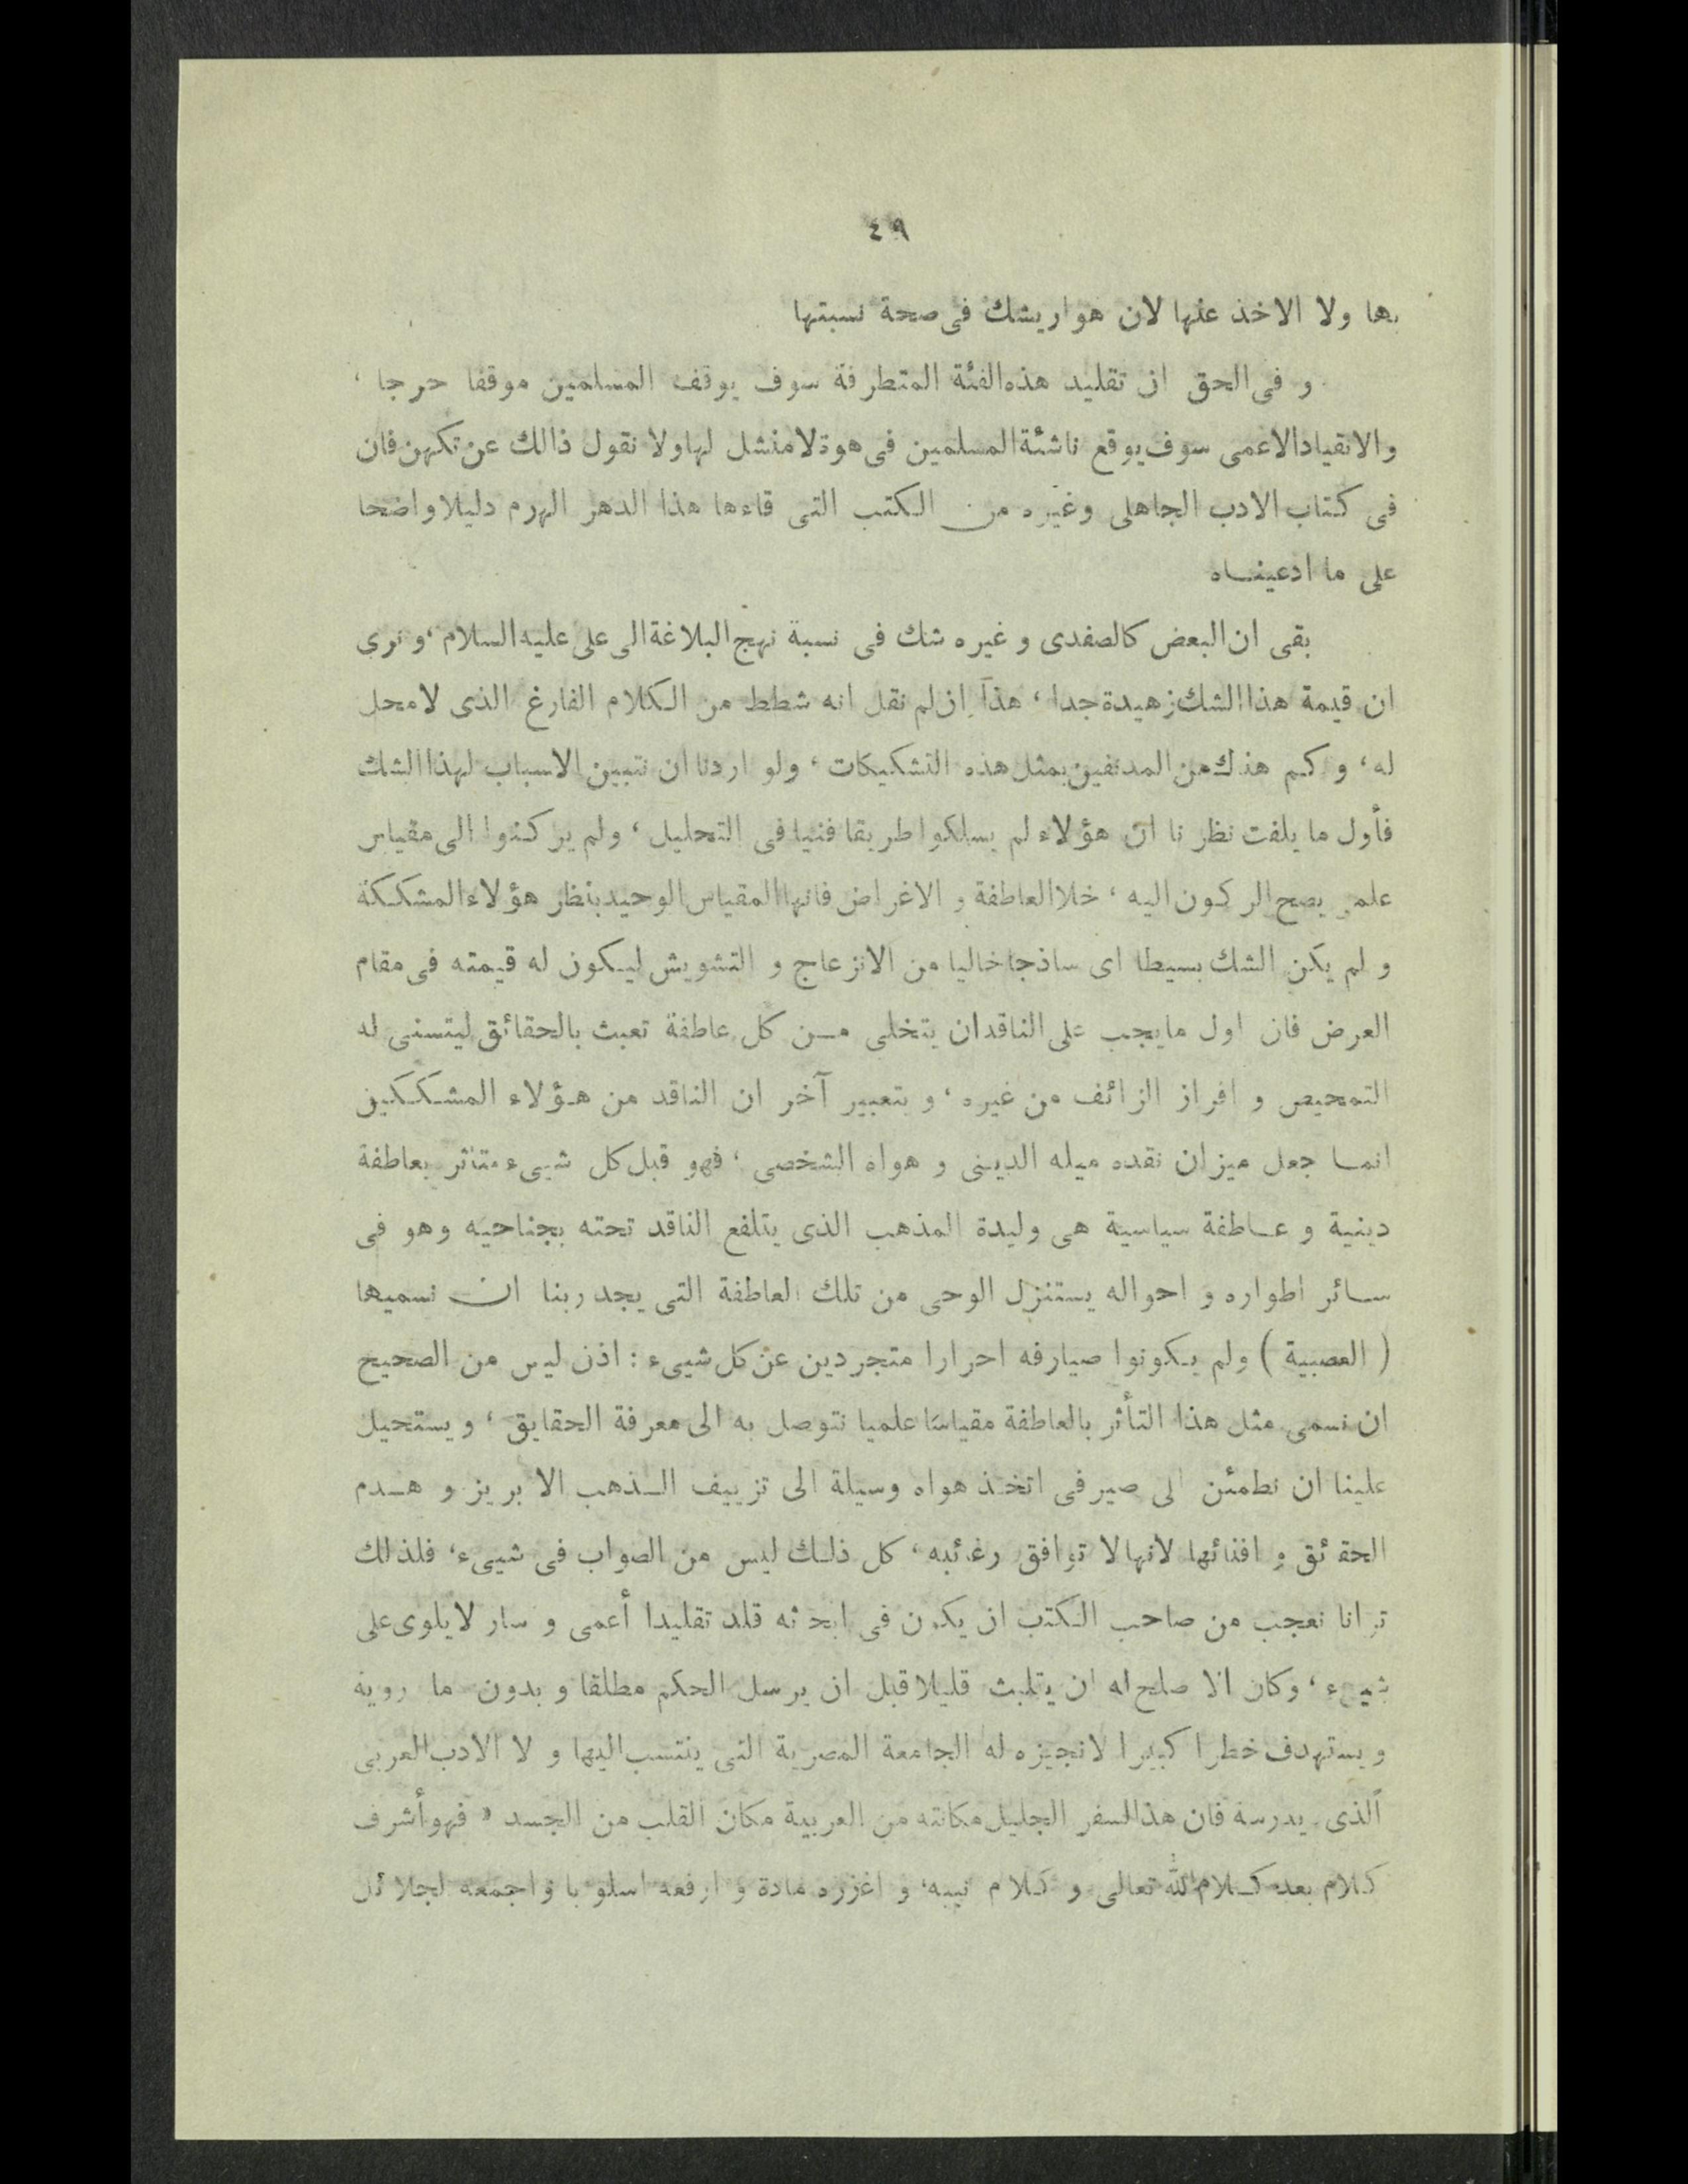 ٤٩
بها ولا الاخذ عنها لان هوار يشك فى صحة نسبتها
و فى الحق ان تقليد هذه الفئة المتطرفة سوف يوقف المسلمين موقفا حرجا ،
والانقياد الاعمى سوف يوقع ناشئة المسلمين فى هوة لا منشل لها ولا نقول ذالك عن تكهن فان
فى كتاب الادب الجاهلى وغيره من الكتب التى قاءها هذا الدهر الهرم دليلا واضحا
على ما ادعيناه
بقى ان البعض كالصفدى و غيره شك فى نسبة نهج البلاغة الى على عليه السلام ، و نرى
ان قيمة هذا الشك زهيدة جدا ، هذا ان لم نقل انه شطط من الكلام الفارغ الذى لا محل
له ، و كم هذك من المدنفين بمثل هذه التشكيكات ، ولو اردنا ان نتبين الاسباب لهذا الشك
فأول ما يلفت نظر نا ان هؤلاء لم يسلكوا طريقا فنيا فى التحليل ، ولم يركنوا الى مقياس
علمى يصح الركون اليه ، خلا العاطفة و الاغراض فانها المقياس الوحيد بنظر هؤلاء المشككة
و لم يكن الشك بسيطا اى ساذجا خاليا من الانزعاج و التشويش ليكون له قيمته فى مقام
العرض فان اول ما يجب على الناقد ان يتخلى من كل عاطفة تعبث بالحقائق ليتسنى له
التمحيص و افراز الزائف من غيره ، و بتعبير آخر ان الناقد من هؤلاء المشككين
انما جعل ميزان نقده ميله الدينى و هواه الشخصى ، فهو قبل كل شيىء متاثر بعاطفة
دينية و عاطفة سياسية هى وليدة المذهب الذى يتلفع الناقد تحته بجناحيه وهو فى
سائر اطواره و احواله يستنزل الوحى من تلك العاطفة التى يجدر بنا ان نسميها
( العصبية ) ولم يكونوا صيارفه احرارا متجردين عن كل شيىء : اذن ليس من الصحيح
ان نسمى مثل هذا التأثر بالعاطفة مقياسا علميا نتوصل به الى معرفة الحقايق ، و يستحيل
علينا ان نطمئن الى صيرفى اتخذ هواه وسيلة الى تزييف الذهب الابريز و هدم
الحقائق و افنائها لانها لا توافق رغائبه ، كل ذلك ليس من الصواب فى شيىء ، فلذلك
ترانا نعجب من صاحب الكتب ان يكون فى ابحاثه قلد تقليدا أعمى و سار لا يلوى على
شيىء ، وكان الا صلح له ان يتلبث قليلا قبل ان يرسل الحكم مطلقا و بدون ما روية
و يستهدف خطرا كبيرا لا تجيزه له الجامعة المصرية التى ينتسب اليها و لا الادب العربى
الذى يدرسه فان هذا السفر الجليل مكانته من العربية مكان القلب من الجسد « فهو أشرف
كلام بعد كلام الله تعالى و كلام نبيه ، و اغزره مادة و ارفعه اسلوبا و اجمعه لجلائل